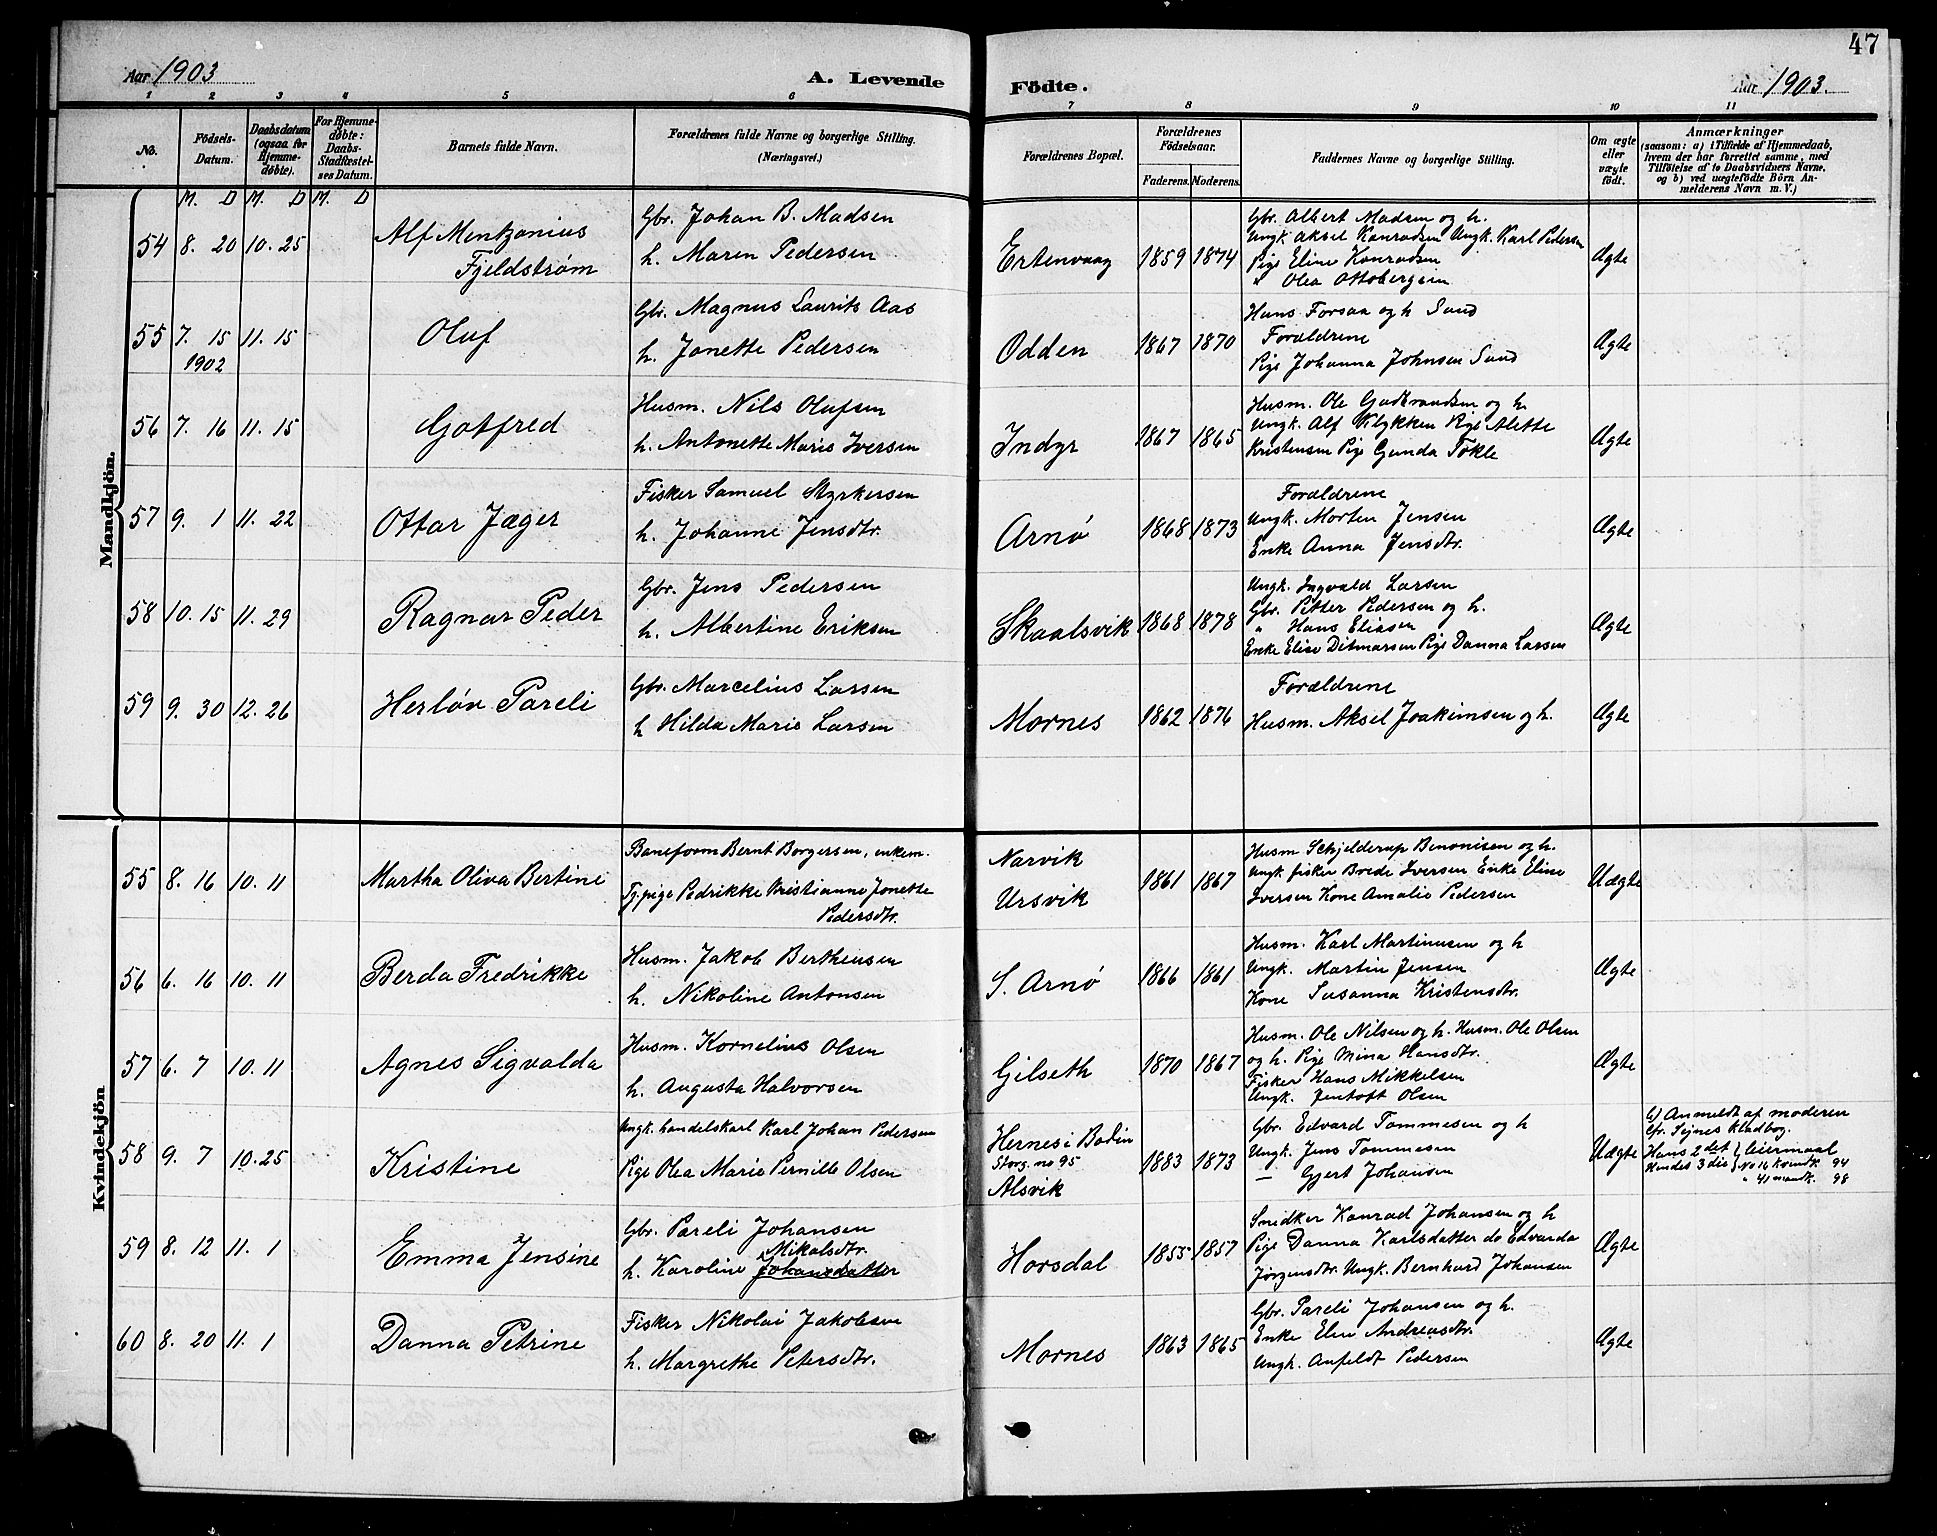 47
Aar 1903
A. Levende
Födte.
Aar 1903.
1 2 3 4 5 6 7 8 9 10 11
No.
Födsels-Datum.
Daabsdatum (ogsaa for Hjemmedøbte).
For Hjemmedøbte: Daabs-Stadfæstelses Datum.
Barnets fulde Navn.
Forældrenes fulde Navne og borgerlige Stilling.
(Næringsvei.)
Forældrenes Bopæl.
Forældrenes Födselsaar.
Faderens. Moderens.
Faddernes Navne og borgerlige Stilling.
Om ægte eller uægte födt.
Anmærkninger
(saasom: a) i Tilfælde af Hjemmedaab, hvem der har forrettet samme, med Tilföielse af to Daabsvidners Navne, og b) ved uægtefödte Börn Anmelderens Navn m. V.)
M. D M. D M. D
Mandkjön.
54 8. 20 10. 25
Alf Mentzonius
Fjeldstrøm
Gbr. Johan B. Madsen
h. Maren Pedersen
Ertenvaag
1859 1874
Gbr. Albert Madsen og h.
Ungk. Aksel Konradsen Ungk. Karl Pedersen
Pige Eline Konradsen
" Olea Ottobergsen
Ægte
55 7. 15 11. 15
1902
Oluf
Gbr. Magnus Laurits Aas
h. Jonette Pedersen
Odden
1867 1870
Hans Forsaa og h Sand
Forældrene
Pige Johanna Johnsen Sand
Ægte
56 7. 16 11. 15
Gotfred
Husm. Nils Olufsen
h. Antonette Marie Iversen
Indyr
1867 1865
Husm. Ole Gudbrandsen og h.
Ungk. Alf Klykken Pige Alette
Kristensen Pige Gunda Tokle
Ægte
57 9. 1 11. 22
Ottar Jæger
Fisker Samuel Styrkersen
h. Johanne Jensdtr.
Arnø
1868 1873
Forældrene
Ungk. Morten Jensen
Enke Anna Jensdtr.
Ægte
58 10. 15 11. 29
Ragnar Peder
Gbr. Jens Pedersen
h. Albertine Eriksen
Skaalsvik
1868 1878
Ungk. Ingvald Larsen
Gbr. Petter Pedersen og h.
" Hans Eliasen
Enke Elise Ditmarsen Pige Danna Larsen
Ægte
59 9. 30 12. 26
Herløv Pareli
Gbr. Marcelius Larsen
h Hilda Marie Larsen
Mornes
1862 1876
Forældrene
Husm. Aksel Joakimsen og h.
Ægte
Kvindekjön
55 8. 16 10. 11
Martha Oliva Bertine
Baneform Bernt Borgersen, enkem.
Tj.pige Pedrikke Kristianne Jonette
Pedersdtr.
Narvik
Ursvik
1861 1867
Husm Schjelderup Benonisen og h.
Ungk fisker Brede Iversen Enke Eline
Iversen Kone Amalie Pedersen
Uægte
56 6. 16 10. 11
Berda Fredrikke
Husm. Jakob Bertheusen
h. Nikoline Antonsen
S. Arnø
1866 1861
Husm. Karl Martinusen og h
Ungk. Martin Jensen
Kone Susanna Kristensdtr.
Ægte
57 6. 7 10. 11
Agnes Sigvalda
Husm. Kornelius Olsen
h. Augusta Halvorsen
Gilseth
1870 1867
Husm. Ole Nilsen og h. Husm. Ole Olsen
og h. Pige Mina Hansdtr.
Fisker Hans Mikkelsen
Ungk. Jentoft Olsen
Ægte
58 9. 7 10. 25
Kristine
Ungk. handelskarl Karl Johan Pedersen
Pige Olea Marie Pernille Olsen
Hernes i Bodin
Storg. no 95
Alsvik
1883 1873
Gbr. Edvard Tommesen og h
Ungk. Jens Tommesen
— Gjert Johansen
Uægte
b) Anmeldt af moderen
cfr. Kladbog.
Hans 2det } leiermaal
Hendes 3die } No 16 kvindk. 94
" 41 mandk. 98
59 8. 12 11. 1
Emma Jensine
Gbr. Pareli Johansen
Mikalsdtr.
h. Karoline Johansdatter
Horsdal
1855 1857
Snedker Konrad Johansen og h
Pige Danna Karlsdatter do Edvarda
Jørgensdtr. Ungk. Bernhard Johansen
Ægte
60 8. 20 11. 1
Danna Petrine
Fisker Nikolai Jakobsen
h. Margrethe Petersdtr.
Mornes
1863 1865
Gbr. Pareli Johansen og h.
Enke Elen Andreasdtr.
Ungk. Anfeldt Pedersen
Ægte